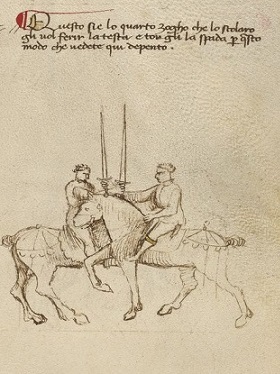 Questo sie lo quarto zogho che lo scolaro
gli vol ferir la testa e tor gli la spada per questo
modo che vedete qui depento.